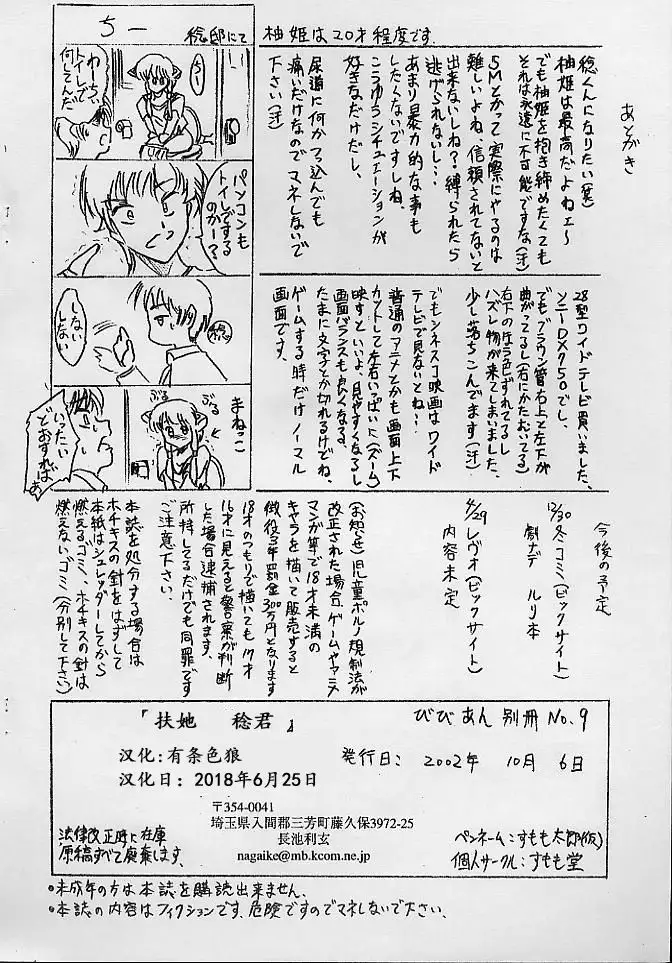 あとがき
稔くんになりたい(笑)
柚姫は最高だよねェ〜
でも柚姫を抱き締めたくても
それは永遠に不可能ですな(汗)
SMとかって実際にやるのは
難しいよね、信頼されてないと
出来ないしね?縛られたら
逃げられないし…
あまり暴力的な事も
したくないですしね、
こうゆうシチュエーションが
好きなだけだし、
尿道に何かつっ込んでも
痛いだけなのでマネしないで
下さい(汗)
柚姫は20才程度です。
稔邸にて
ちー
ちー
わーちぃ
トイレで
何してんだ
パソコンも
トイレでする
のかー?
しない
しない
稔
まねっこ
ぶる
ぶる
いったい
どおすれば
28型ワイドテレビ買いました、
ソニーDX750でし、
でもブラウン管右上と左下が
曲がってるし(右にかたむいてる)
右下の方ら色ずれてるし
ハズレ物が来てしまいました、
少し落ちこんでます(汗)
でもシネスコ映画はワイド
テレビで見ないとね…
普通のアニメとかも画面上下
カットして左右いっぱいに(ズーム)
映すといいよ、見やすくなるし
画面バランスも良くなる、
たまに文字とか切れるけどね、
ゲームする時だけノーマル
画面です、
今後の予定
12/30冬コミ(ビックサイト)
劇ナデ ルリ本
4/29レヴォ(ビックサイト)
内容未定
(お知らせ)児童ポルノ規制法が
改正された場合、ゲームやアニメ
マンガ等で18才未満の
キャラを描いて販売すると
懲役3年罰金300万円となります
18才のつもりで描いても17才
16才に見えると警察が判断
した場合逮捕されます、
所持してるだけでも同罪です
ご注意下さい、
本誌を処分する場合は
ホチキスの針をはずして
本紙はシュレッダーしてから
燃えるゴミ、ホチキスの針は
燃えないゴミ(分別して下さい)
『扶她 稔君』
びびあん 別冊 No.9
汉化:有条色狼
汉化日:2018年6月25日
発行日: 2002年 10月 6日
〒354-0041
埼玉県入間郡三芳町藤久保3972-25
長池利玄
nagaike@mb.kcom.ne.jp
法律改正時に在庫
原稿すべて廃棄します、
ペンネーム:すもも太郎(仮)
個人サークル:すもも堂
・未成年の方は本誌を購読出来ません、
・本誌の内容はフィクションです、危険ですのでマネしないで下さい、